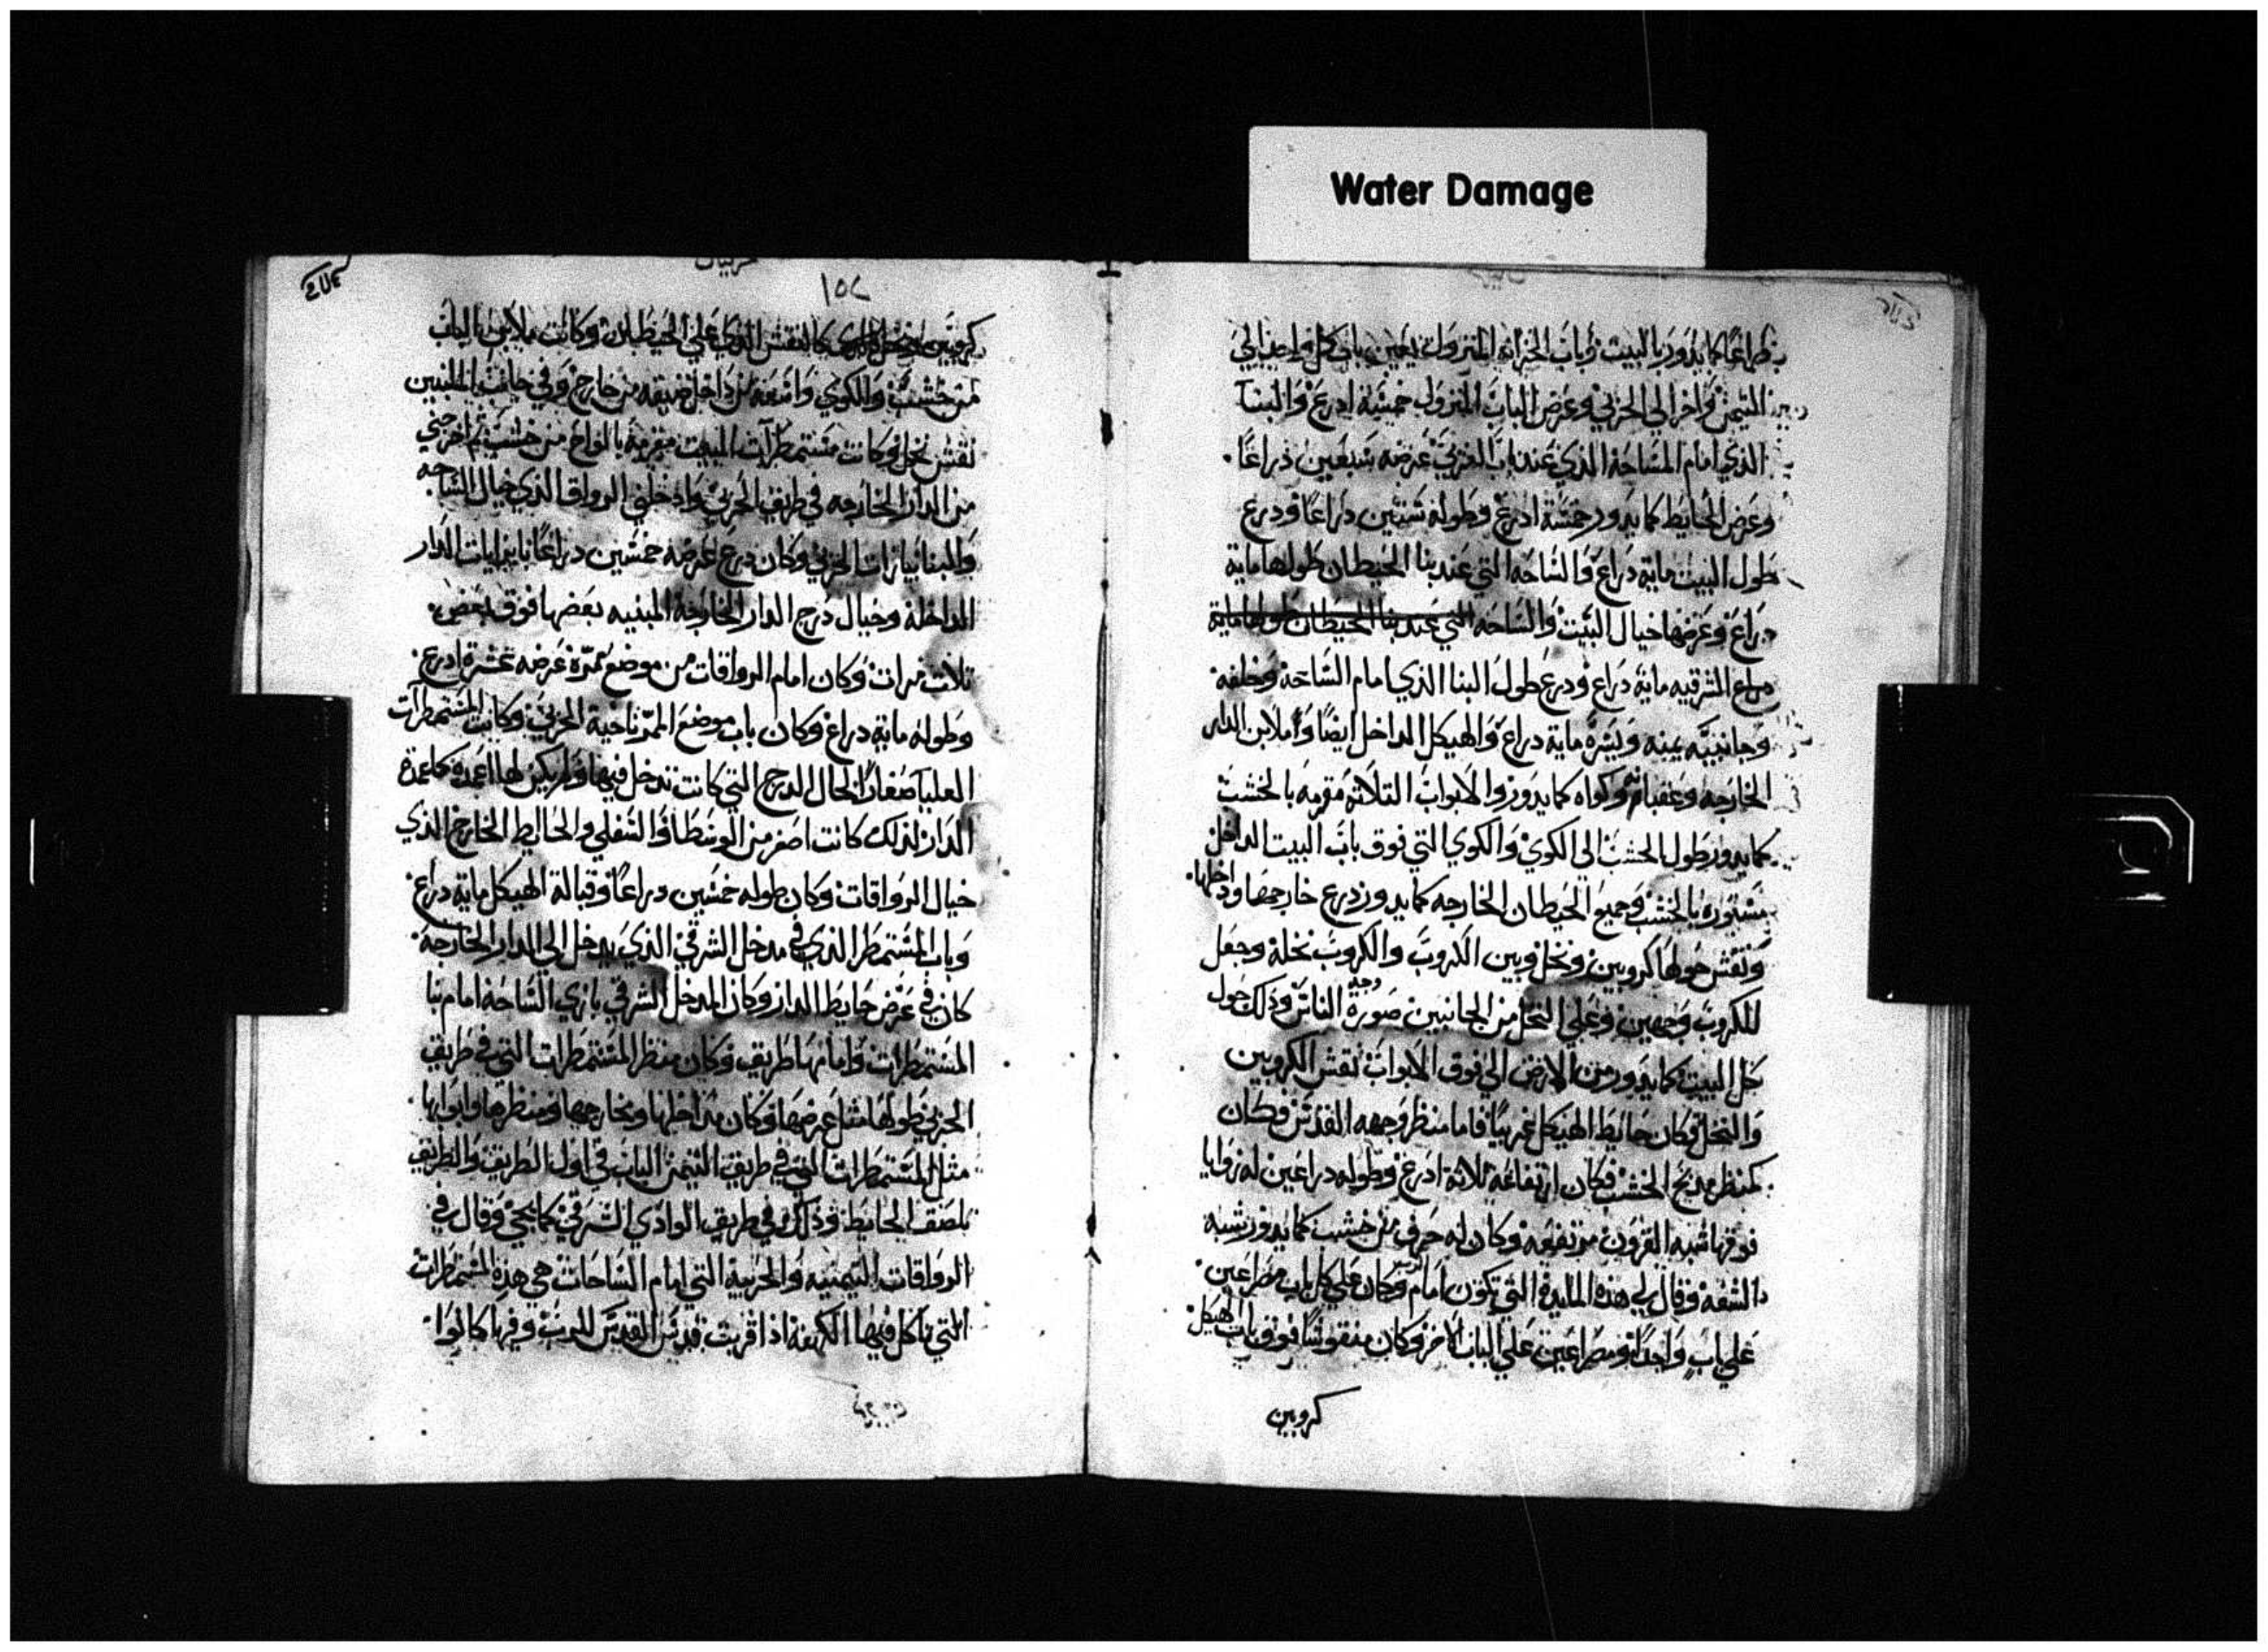 Water Damage
ذراعًا كما يدور بالبيت وباب الخزانه المتروك يمين باب كل واحد الي
التيمن واخر الي الحربي وعرض الباب المتروك خمسة ادرع والبنا
الذي امام الساحة الذي عند باب الغربي عرضه سبعين ذراعًا
وعرض الحايط كما يدور خمسة ادرع وطوله تسعين دراعًا ودرع
طول البيت ماية دراع والساحه التي عند بنا الحيطان طولها ماية
دراع وعرضها خيال البيت والساحه التي عند بنا الحيطان طولها ماية
دراع الشرقيه ماية دراع ودرع طول البنا الذي امام الساحة وخلفه
وجانبيه يمينه ويسره ماية دراع والهيكل الداخل ايضًا واملابن الدار
الخارجه وعقبانهم وكواه كما يدور والابواب التلاته مقرمه بالخشب
كما يدور وطول الخشب الي الكوي والكوي التي فوق باب البيت الداخل
مستوره بالخشب وجميع الحيطان الخارجه كما يدور ودرع خارجها وداخلها
ونقش حولها كروبين ونخل وبين الكروب والكروب نخلة وجعل
للكروب وجهين وعلي النخل من الجانبين صورة وجه الناس وذلك حول
كل البيت كما يدور من الارض الي فوق الابواب نقش الكروبين
والنخل وكان حايط الهيكل غربيًا فاما منظر وجهه القدس فكان
كمنظر مدبح الخشب فكان ارتفاعه ثلاثة ادرع وطوله دراعين له زوايا
فوقها شبه القرون مرتفعه وكان له حرف من خشب كما يدور شبه
الشفه وقال لي هذه المايدة التي تكون امام الرب وكان علي كل باب مصراعين
علي باب واحدًا ومصراعين علي الباب الاخر وكان منقوشًا فوق باب الهيكل
كروبين
١٥٧
كروبين ونخل كالنقش الذي علي الحيطان وكانت ملابن الباب
من خشب والكوي واسعه من داخل ضيقه من خارج وفي جانب
نقش نخل وكانت مستمطرات البيت مقرمة بالواح من خشب ثم اخرجني
من الدار الخارجه في طريق الحربي وادخلني الرواق الذي خيال الساحه
والبنا بازات الحربي وكان درع عرضه خمسين دراعًا بابوابات الدار
الداخلة وخيال درج الدار الخارجة المبنيه بعضها فوق بعض
تلات مرات وكان امام الرواقات من موضع ممرّه عرضه عشرة ادرع
وطوله ماية دراع وكان باب موضع الممرّ ناحية الحربي وكانت المستمطرات
العليا صغارًا لحال الدرج التي كانت تدخل فيها ولم يكن لها اعمدة كاعمدة
الدار لذلك كانت اصغر من الوسطا والسفلي والحايط الخارج الذي
خيال الرواقات وكان طوله خمسين دراعًا وقبالة الهيكل ماية دراع
وباب المستمطر الذي في مدخل الشرقي الذي يدخل الي الدار الخارجة
كان في عرض حايط الدار وكان المدخل الشرقي بازي الساحة امام بنا
المستمطرات وامامها طريق وكان منظر المستمطرات التي في طريق
الحربي طولها مثل عرضها وكان مداخلها ومخارجها ومنظرها وابوابها
مثل المستمطرات التي في طريق التيمن الباب في اول الطريق والطريق
ملصق الحايط وذلك في طريق الوادي الشرقي كما يجي وقال لي
الرواقات التيمنيه والحربية التي امام الساحات هي هذه المستمطرات
التي ياكل فيها الكهنة اذا قربت قدس القديس للرب وفيها كانوا